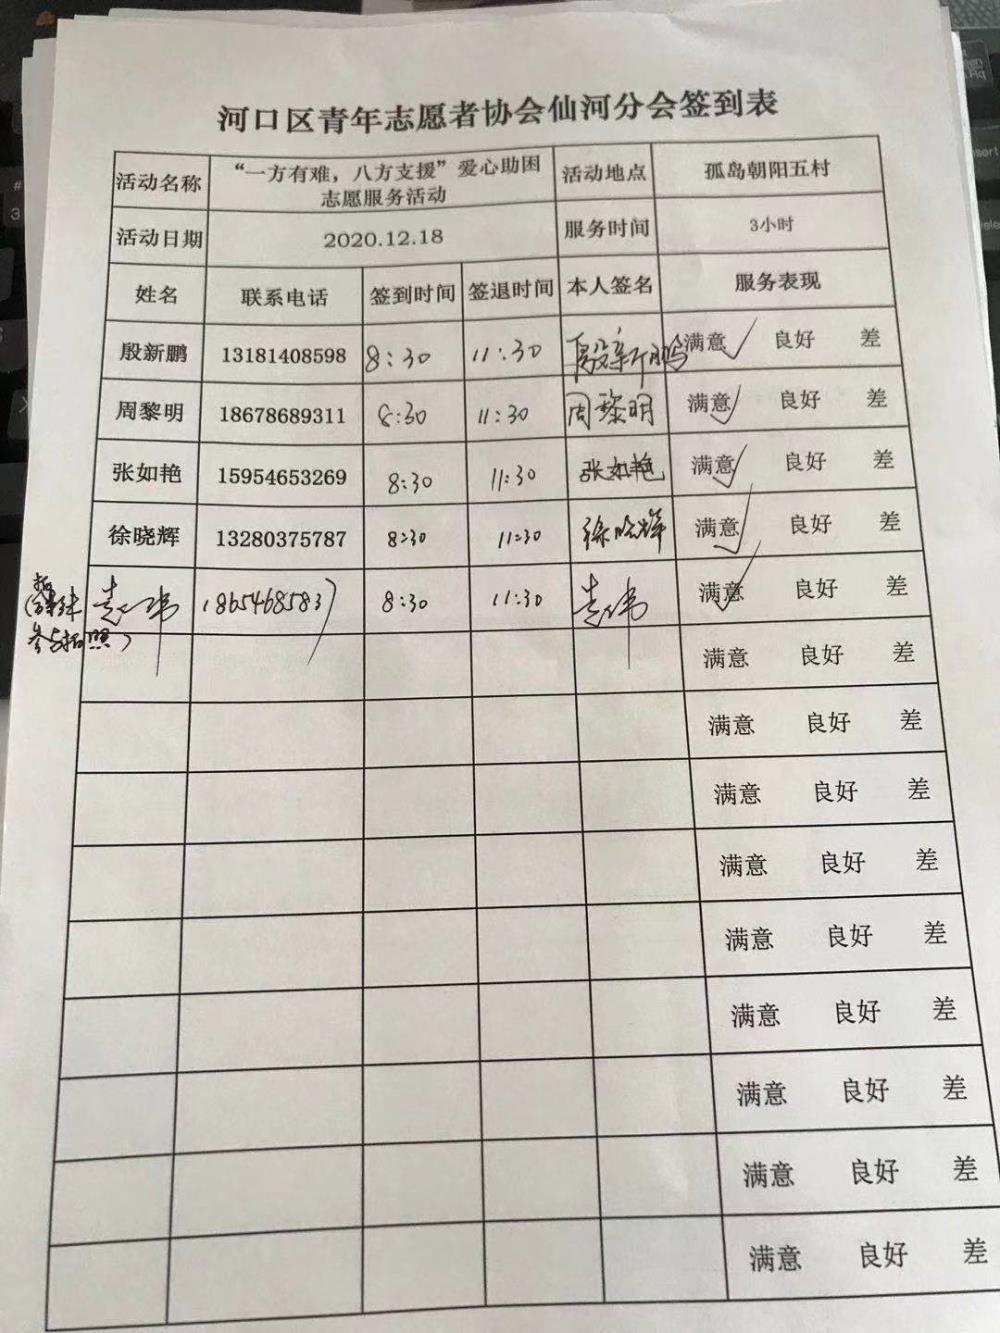 河口区青年志愿者协会仙河分会签到表
活动名称 “一方有难，八方支援”爱心助困 志愿服务活动 活动地点 孤岛朝阳五村
活动日期 2020.12.18 服务时间 3小时
姓名 联系电话 签到时间 签退时间 本人签名 服务表现
殷新鹏 13181408598 8:30 11:30 殷新鹏 满意✓ 良好 差
周黎明 18678689311 8:30 11:30 周黎明 满意✓ 良好 差
张如艳 15954653269 8:30 11:30 张如艳 满意✓ 良好 差
徐晓辉 13280375787 8:30 11:30 徐晓辉 满意✓ 良好 差
8:30 11:30 满意✓ 良好 差
参与拍照）
满意 良好 差
满意 良好 差
满意 良好 差
满意 良好 差
满意 良好 差
满意 良好 差
满意 良好 差
满意 良好 差
满意 良好 差